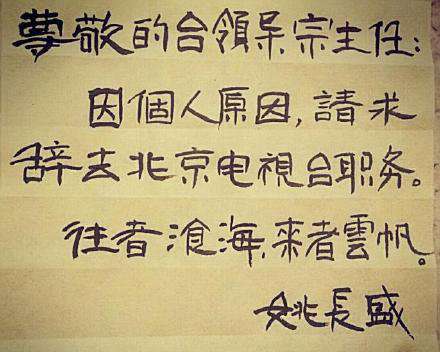 尊敬的台領导宗主任:
因個人原因,請求
辞去北京电視台职务。
往者滄海,來者雲帆。
姚長盛